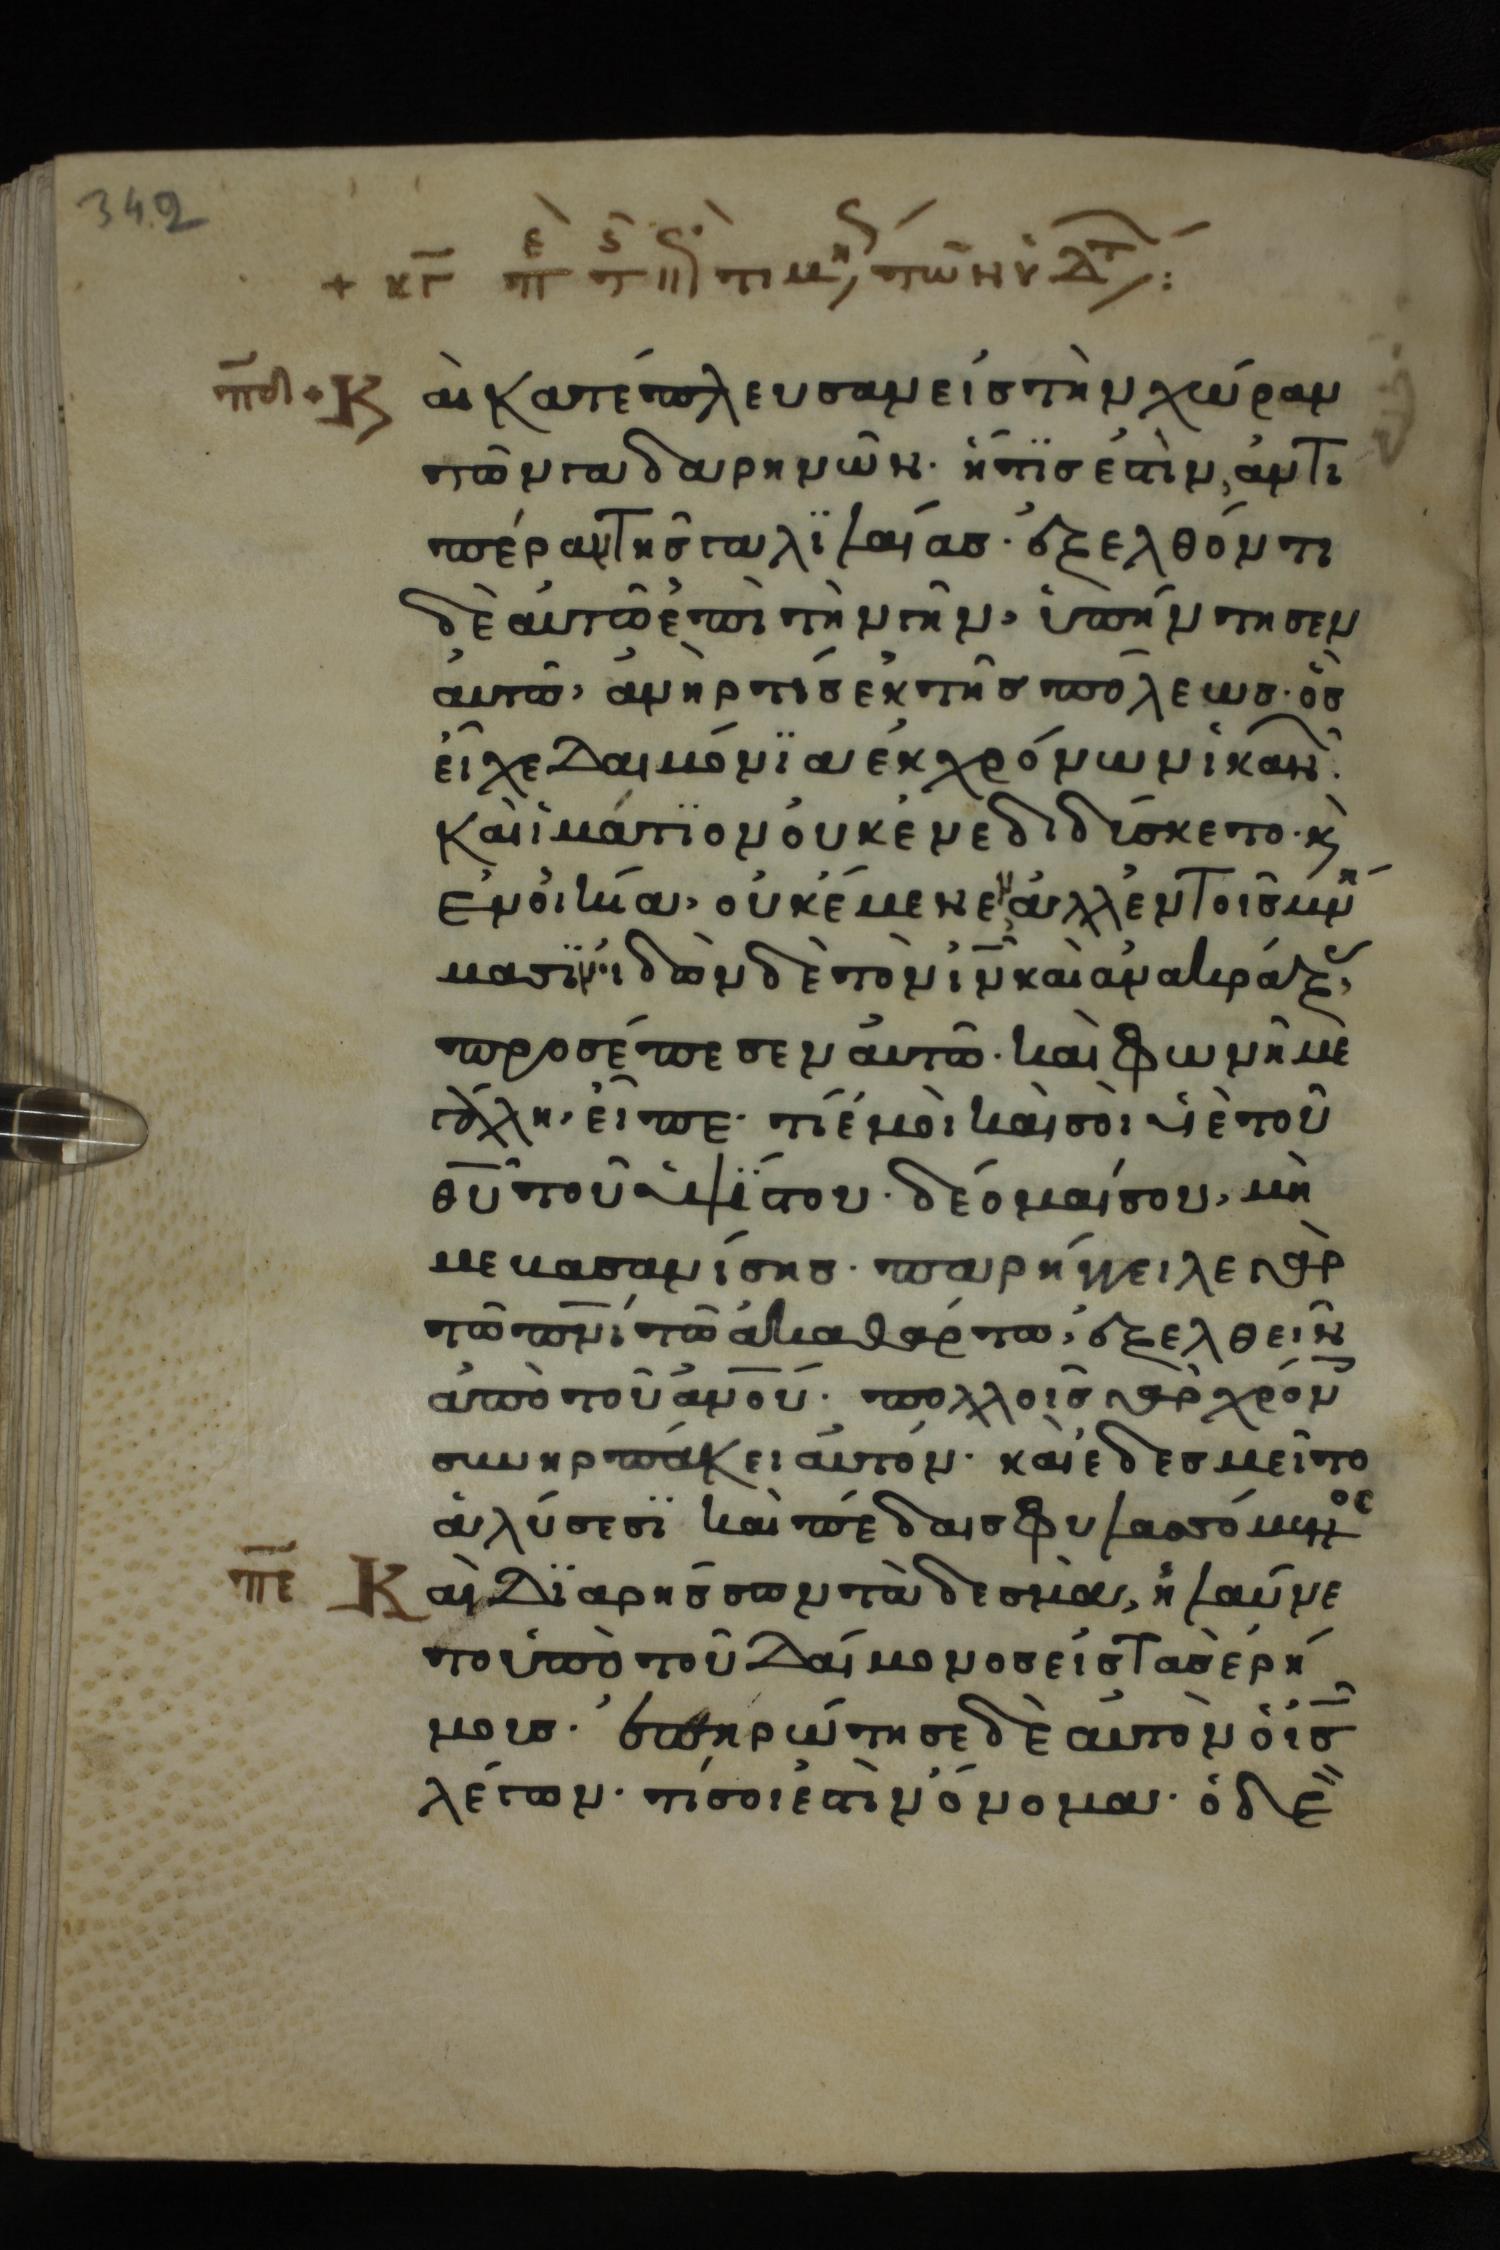 342
+ κγ
πδ + Κ αι κατέπλευσαν εἰς τὴν χώραν
τῶν γαδαρηνῶν· ἥτις ἐστὶν, ἀντι
πέραν τῆς γαλϊλαίας· ἐξελθόντι
δὲ αὐτῶ ἐπὶ τὴν γῆν, ὑπήντησεν
αὐτῶ, ἀνὴρ τίς ἐκ τῆς πόλεως· ὃς
εἶχε δαιμόνϊα ἐκ χρόνων ἱκανῶν·
Καὶ ἱμάτϊον οὐκ ἐνεδιδύσκετο· κ
ἐν οἰκία, οὐκ ἔμενεν ἀλλ ἐν τοῖς μνή
μασϊν· ἰδὼν δὲ τὸν ιν καὶ ἀνακράξας,
προσέπεσεν αὐτῶ· καὶ φωνῆ με
γάλη, εἶπε· τί ἐμοὶ καὶ σοὶ ιυ υἱὲ τοῦ
θυ τοῦ ὑψίστου· δέομαί σου, μή
με βασανίσης· παρήγγειλε γὰρ
τῶ πνι τῶ ἀκαθάρτω, ἐξελθεῖν
ἀπὸ τοῦ ανου· πολλοῖς γὰρ χρόν
συνηρπάκει αὐτόν· καὶ ἐδεσμεῖτο
ἁλύσεσϊ καὶ πέδαις φυλασσόμενος
πε Καὶ διαρήσσων τὰ δεσμὰ, ἠλαύνε
το ὑπὸ τοῦ δαίμονος εἰς τὰς ἐρή
μους· ἐπηρώτησε δὲ αὐτὸν ὁ ις
λέγων· τί σοι ἐστὶν ὄνομα· ὁ δὲ